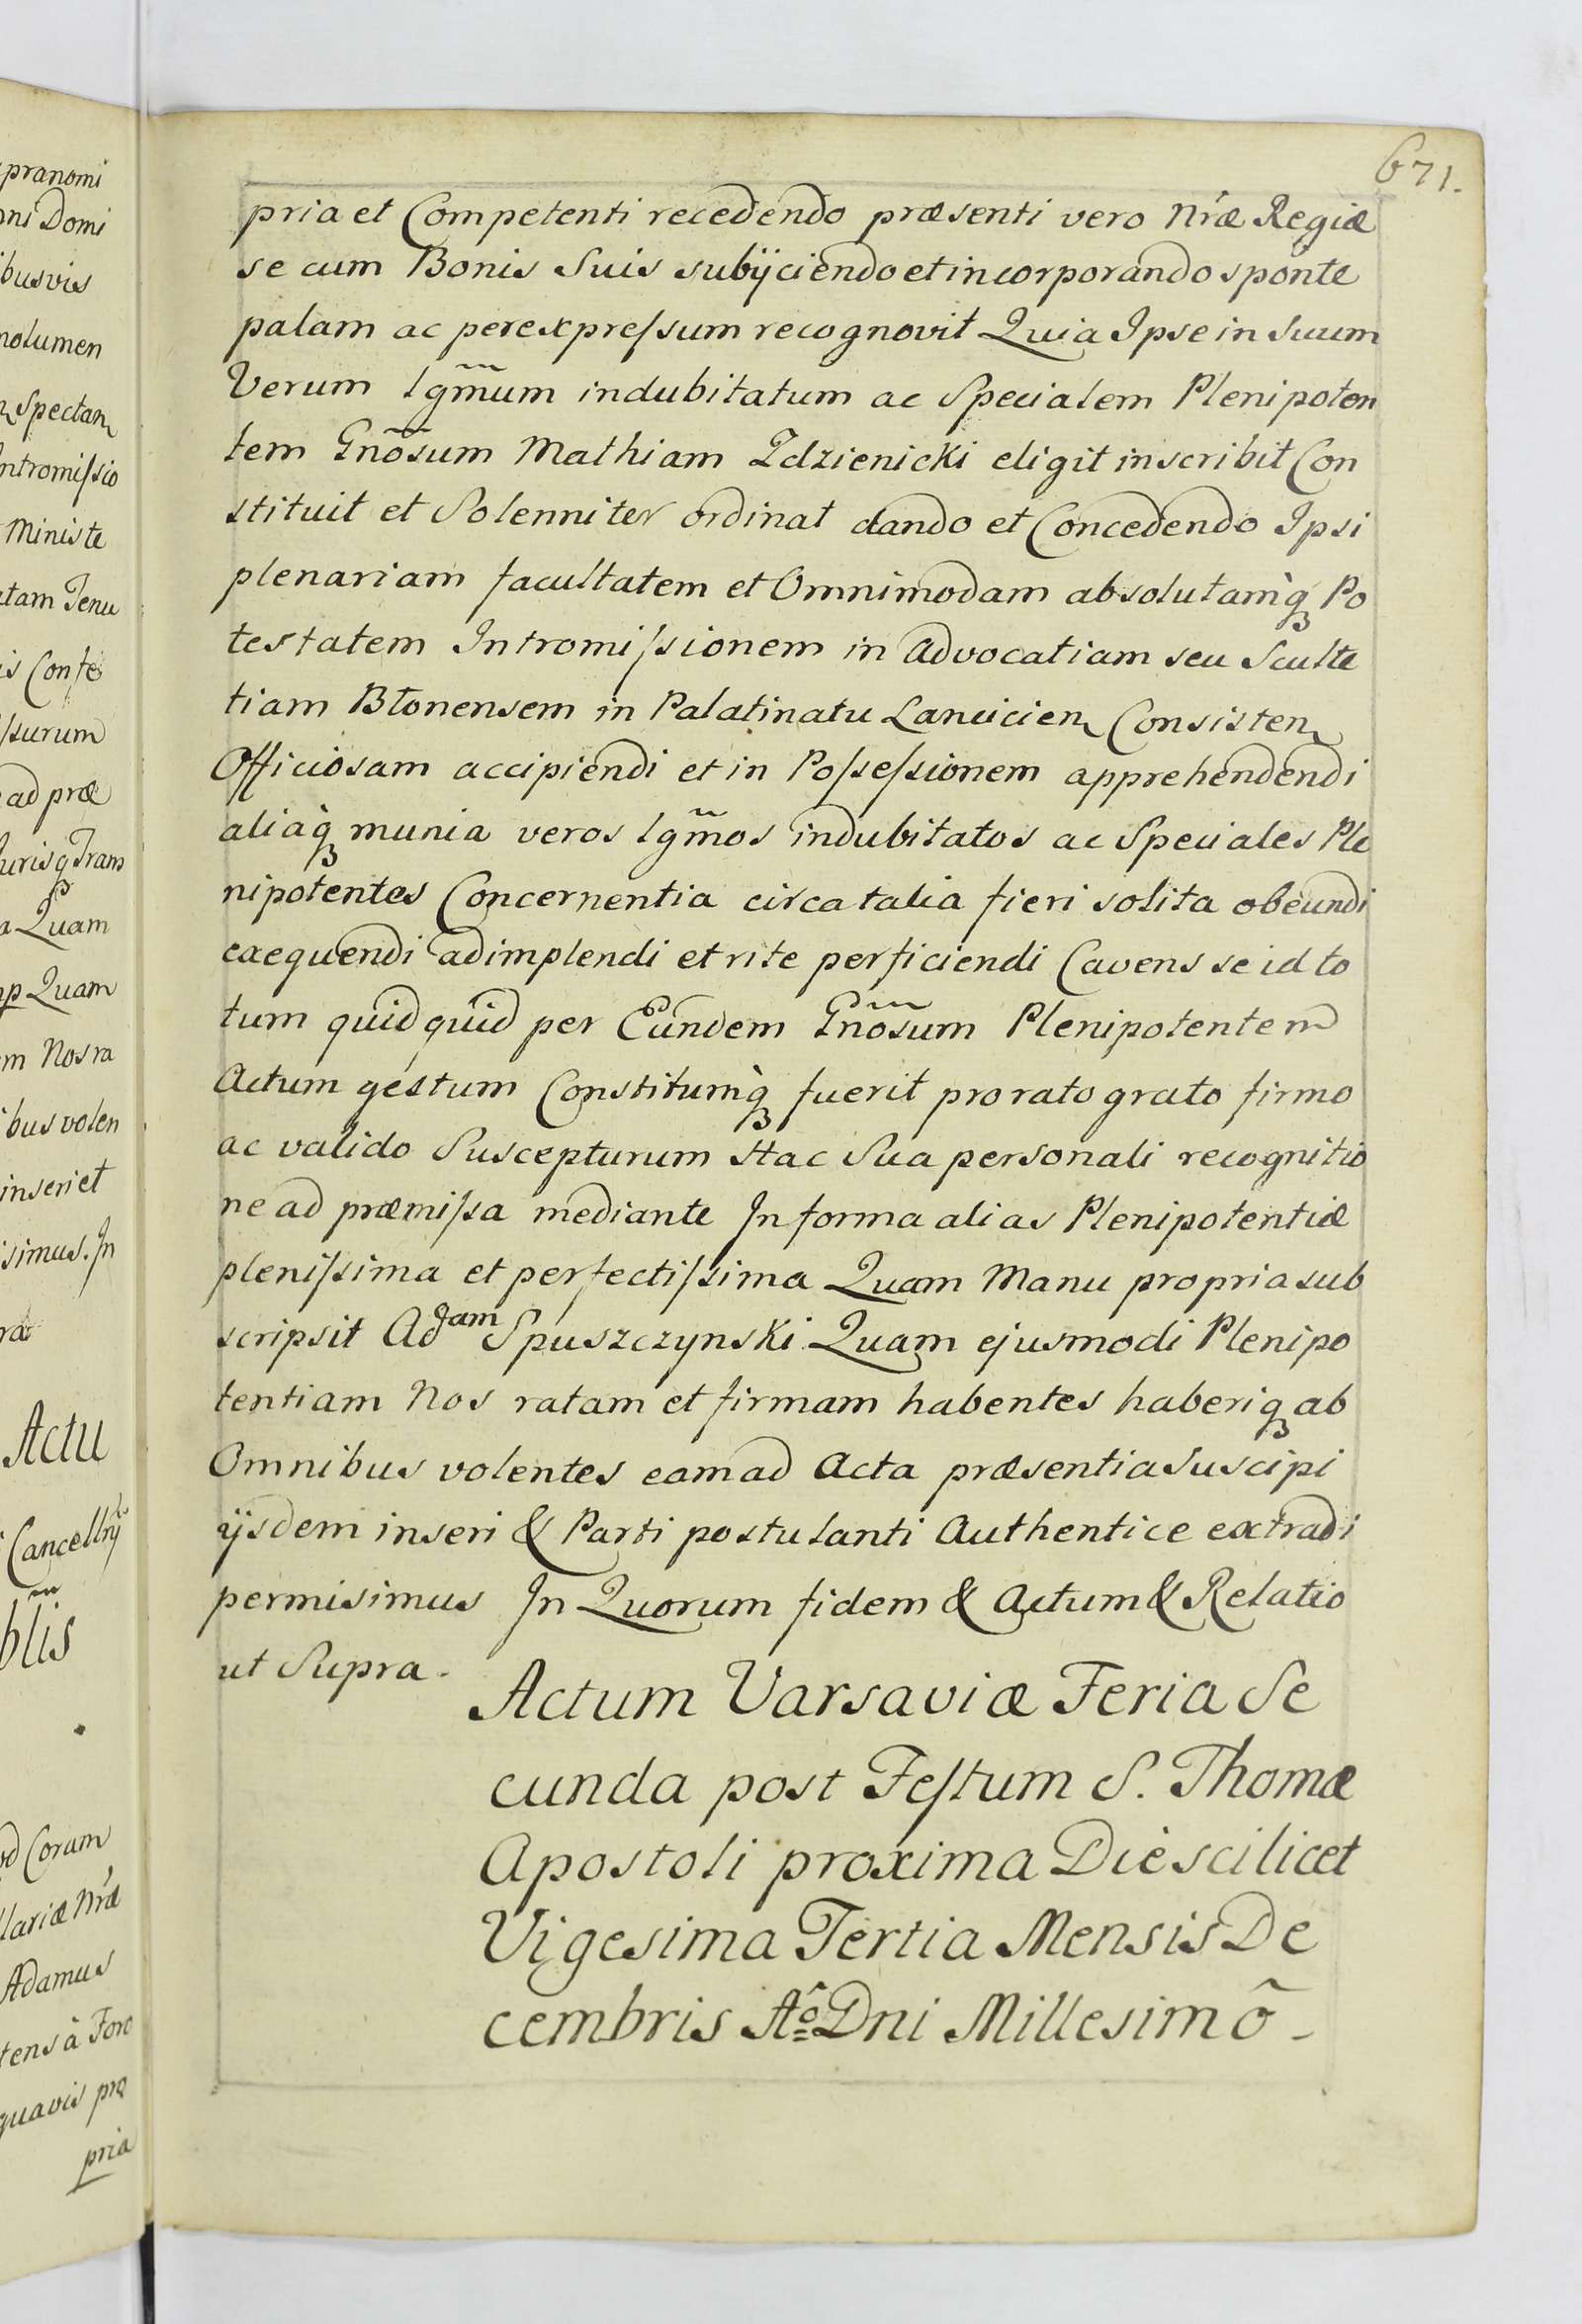 pranomi
oni Domi
ibusvis
nolumen
Spectan
Intromissio
Ministe
atam Tenu
is Confe
ssurum
ad præ
Jurisq Trans
a Quam
np Quam
em Nos ra
ibus volen
inseri et
isimus. In
Actu
Cancellrÿ
od Coram
llariæ Nræ
Adamus
tens à Foro
quavis pro
pria
671.
pria et Competenti recedendo præsenti vero Nræ Regiæ
se cum Bonis Suis subÿciendo et incorporando sponte
palam ac per expressum recognovit Quia Ipse in Suum
Verum lgm̃um indubitatum ac Specialem Plenipoten
tem Gnõsum Mathiam Zdzienicki eligit inscribit Con
stituit et Solenniter ordinat dando et Concedendo Ipsi
plenariam facultatem et Omnimodam absolutamq̀ Po
testatem Intromissionem in Advocatiam seu Sculte
tiam Błonensem in Palatinatu Lancicien Consisten
Officiosam accipiendi et in Possessionem apprehendendi
aliaq̀ munia veros lgm̃os indubitatos ac Speciales Ple
nipotentes Concernentia circa talia fieri solita obeundi
exequendi adimplendi et rite perficiendi Cavens se id to
tum quidquid per Eundem Gnõsum Plenipotentem
Actum gestum Constitumq̀ fuerit pro rato grato firmo
ac valido Suscepturum Hac Sua personali recognitio
ne ad præmissa mediante In forma alias Plenipotentiæ
plenissima et perfectissima Quam Manu propria sub
scripsit Adjam Spuszczynski Quam ejusmodi Plenipo
tentiam Nos ratam et firmam habentes haberiq ab
Omnibus volentes eam ad Acta præsentia Suscipi
ÿsdem inseri & Parti postulanti Authentice extradi
permisimus In Quorum fidem & Actum & Relatio
ut Supra.
Actum Varsaviæ Feria Se
cunda post Festum S. Thomæ
Apostoli proxima Diè scilicet
Vigesima Tertia Mensis De
cembris Aô Dni Millesimõ -